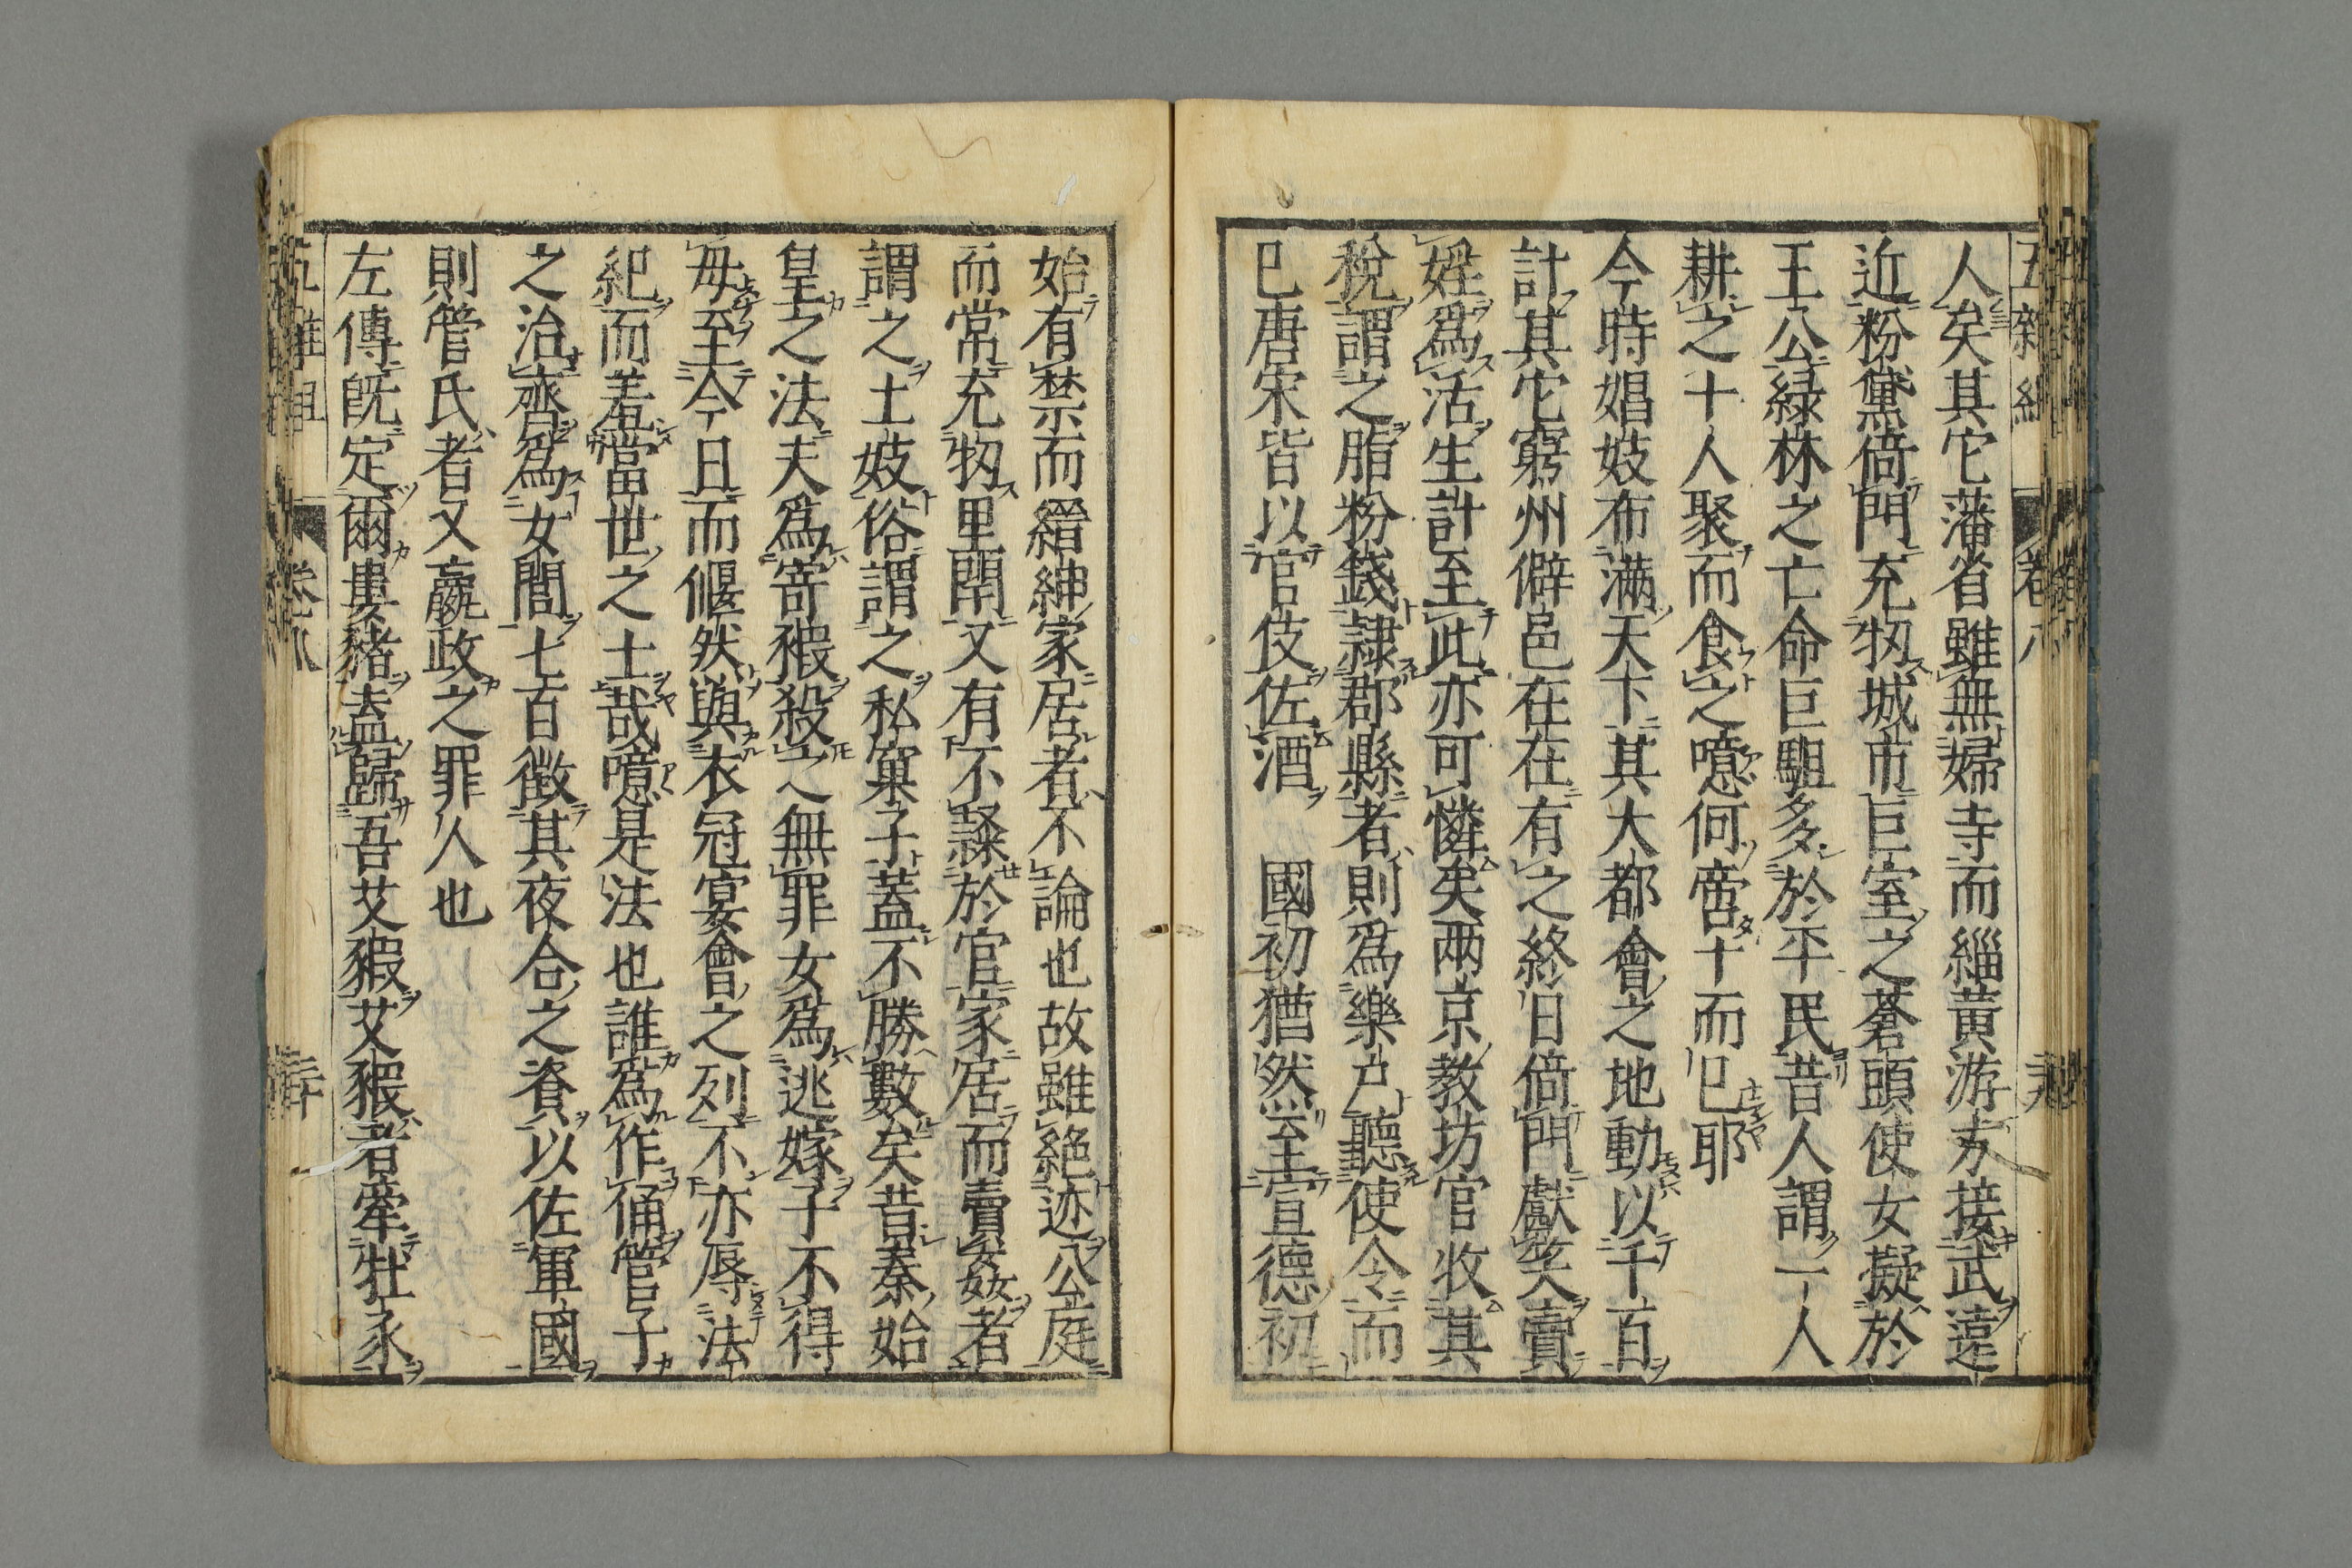 人矣其它藩省雖無婦寺而緇黃游方接武遠
近粉黛倚門充牣城市巨室之蒼頭使女擬於
王公綠林之亡命巨駔多於平民昔人謂一人
耕之十人聚而食之噫何啻十而已耶
今時娼妓布滿天下其大都會之地動以千百
計其它窮州僻邑在在有之終日倚門獻笑賣
婬爲活生計至此亦可憐矣兩京教坊官收其
稅謂之脂粉錢隷郡縣者則爲樂戶聽使令而
巳唐宋皆以官伎佐酒 國初猶然至宣德初
始有禁而縉紳家居者不論也故雖絕迹公庭
而常充牣里閈又有不隷於官家居而賣姦者
謂之土妓俗謂之私窠子蓋不勝數矣昔秦始
皇之法夫爲寄豭殺之無罪女爲逃嫁子不得
毋至今日而偃然與衣冠宴會之列不亦辱法
紀而羞當世之士哉噫是法也誰爲作俑管子
之治齊爲女閭七百徵其夜合之資以佐軍國
則管氏者又嬴政之罪人也
左傳旣定爾婁豬盍歸吾艾豭艾豭者牽牡豕
五雜組 卷八
五雜組 卷八 三十